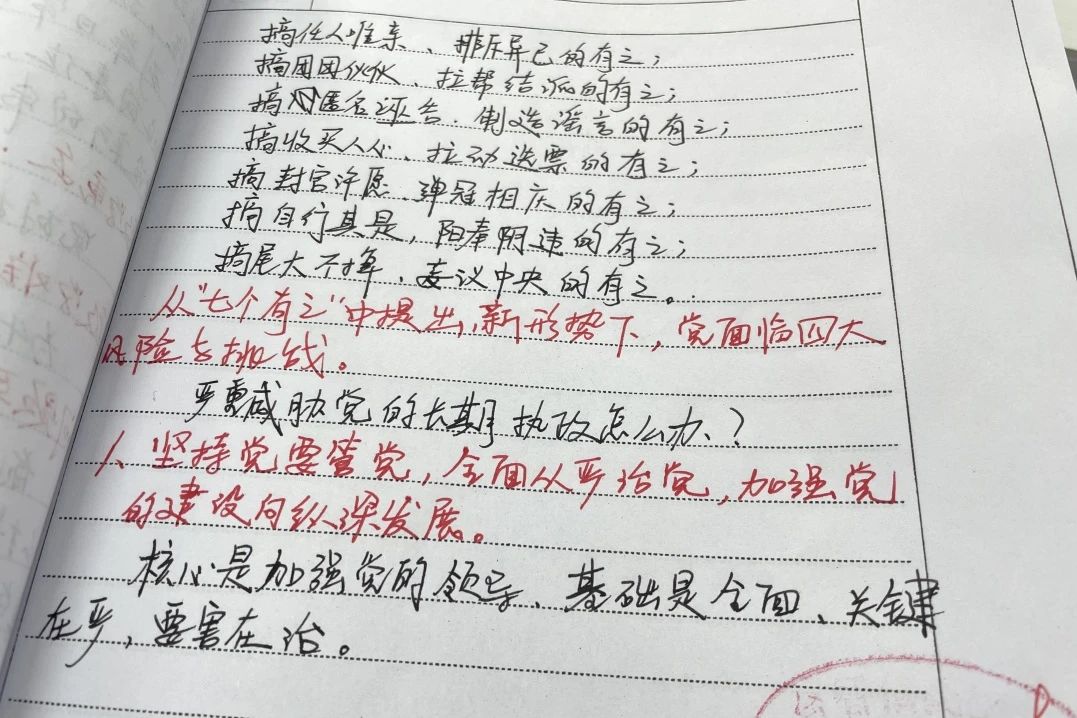 搞任人唯亲、排斥异己的有之；
搞团团伙伙、拉帮结派的有之；
搞匿名诬告、制造谣言的有之；
搞收买人心、拉动选票的有之；
搞封官许愿、弹冠相庆的有之；
搞自行其是，阳奉阴违的有之；
搞尾大不掉、妄议中央的有之。
从“七个有之”中提出，新形势下，党面临四大
风险与挑战。
严重威胁党的长期执政怎么办？
1、坚持党要管党，全面从严治党，加强党
的建设向纵深发展。
核心是加强党的领导、基础是全面、关键
在严，要害在治。